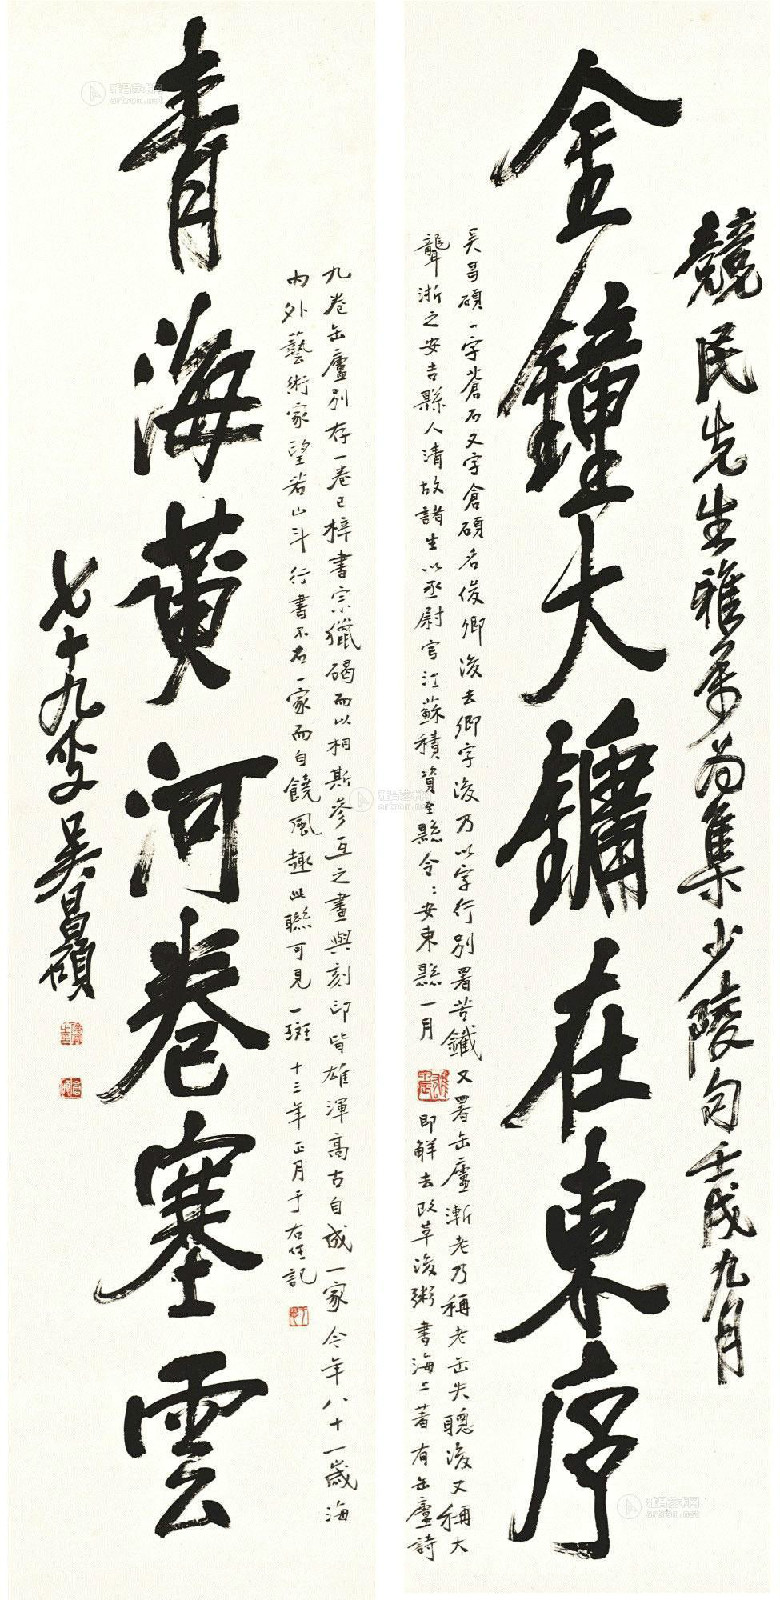 競民先生雅屬為集少陵句壬戌九月
金鐘大鏞在東序
吳昌碩一字蒼石又字倉碩名俊卿後去卿字後乃以字行別署苦鐵又署缶廬漸老乃稱老缶失聰後又稱大
聾浙之安吉縣人清故諸生以丞尉官江蘇積資至縣令:安東縣一月即解去改革後鬻書海上著有缶廬詩
九卷缶廬別存一卷已梓書宗獵碣而以相斯參互之畫與刻印皆雄渾高古自成一家今年八十一歲海
內外藝術家望若山斗行書不名一家而自饒風趣此聯可見一斑十三年正月于右任記
青海黃河卷塞雲
七十九叟吳昌碩